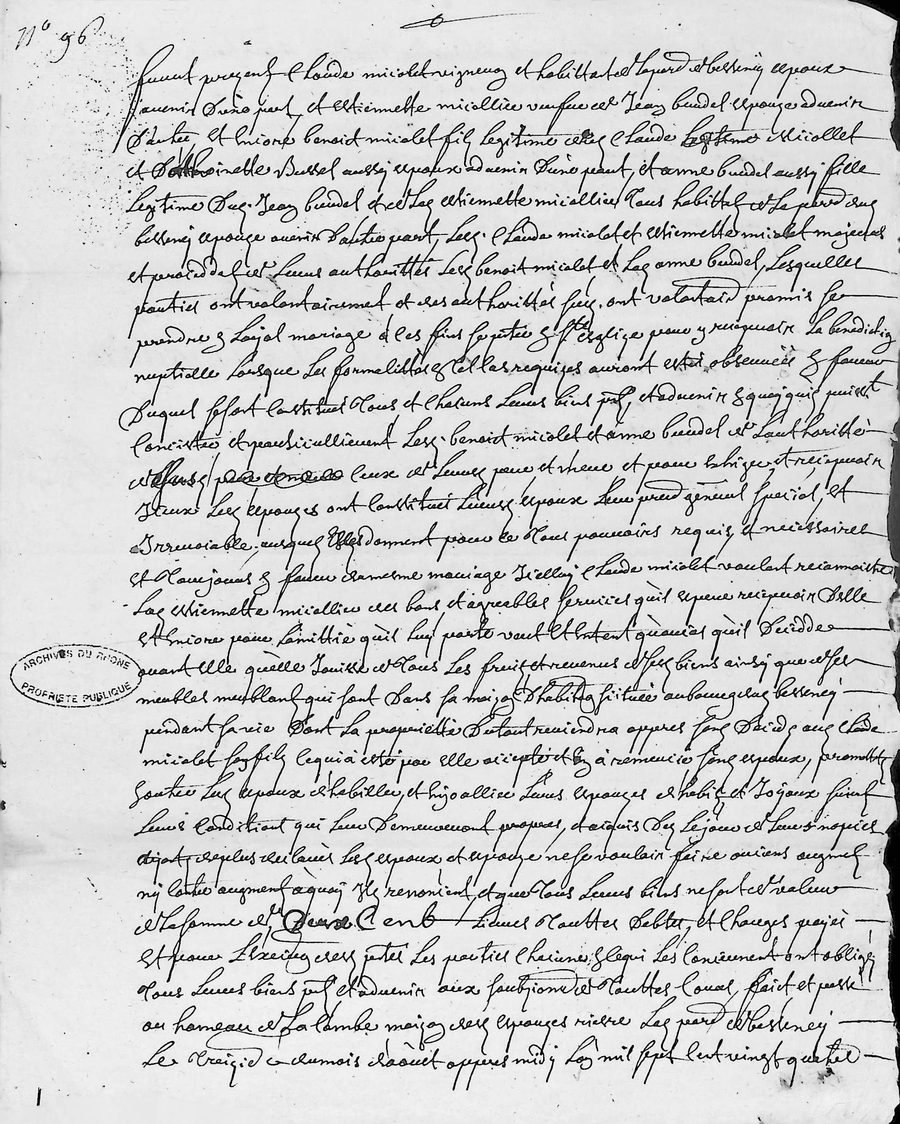 N° 96
furent present Claude micolet vigneron et habittant de la par de bessenay espoux
avenir d'une part, et estiennette micollier veufve de Jean burdel espouze advenir
d'autre, et encore benoit micolet fils legitime dud Claude micollet
et d'anthoinette Bussel aussy espoux advenir d'une part, et anne burdel aussy fille
legitime dud. Jean burdel et de lad estiennette micollier tous habittans de la par dud
bessenay espouze avenir d'autre part, lesd. Claude micolet et estiennette micolet majeurs
et de leurs authorittés lesd benoit micolet et lad anne burdel, lesquelles
parties ont volontairement et des authorittés sus. ont promis se
prendre en loyal mariage à ces fins se pnter en s.te esglize pour y recepvoir la benediction
nuptielle lorsque les formalittés requizes auront esté observées en faveur
duquel se sont constitué tous et chacuns leurs biens pnt, et advenir en quoy quils puiss.t
concister, et particullierement lesd. benoit micolet et anne burdel de l'authoritté
ceux de leurs pere et mere et pour exhiger, et recepvoir
iceux lesd espouzes ont constitué leurs espoux leur proc general special, et
irrevocable auxquels elles donnent pour ce tous pouvoirs requis, et necessaires
et toujours en faveur du mesme mariage icelluy Claude micolet voulant reconnoistre
lad estiennette micollier des bons et agreables services qu'il espere recepvoir d'elle
et encore pour l'amittié qu'il luy porte veut et entent qu'au cas qu'il decedde
avant elle qu'elle jouisse de tous les fruit et revenus de ses biens ainsy que de ses
meubles meublant qui sont dans sa maizon d'habitaon scituée au bourg dud bessenay
pendant sa vie dont la proprietté du tout reviendra appres son deceds aud Claude
micolet son fils ce qui a esté par elle accepté et en a remercié son espoux, promettant
en outre lesd espoux d'habiller, et enjoallier leurs espouzes d'habits et joyaux suivant
leurs conditions qui leur demeureront propres, et acquis des le jour de leurs nopces
de plus declarés lesd espoux et espouze ne se voulair faire aucuns augment
ny contre augment à quoy ils renoncent, et que tous leurs biens ne sont de valeur
de la somme de Deux Cent livres touttes debtes, et charges payés
et pour l'execuon des pntes les parties chacune en ce qui les concernent ont obligé
tous leurs biens pnt et advenir aux soubzmissions de touttes cours, faict et passé
au hameau de la Combe maizon desd espouzes riere lad par de bessenay
le treizie du mois d'aout appres midy l'an mil sept cent vingt quatre
ARCHIVES DU RHONE
PROPRIETE PUBLIQUE
1